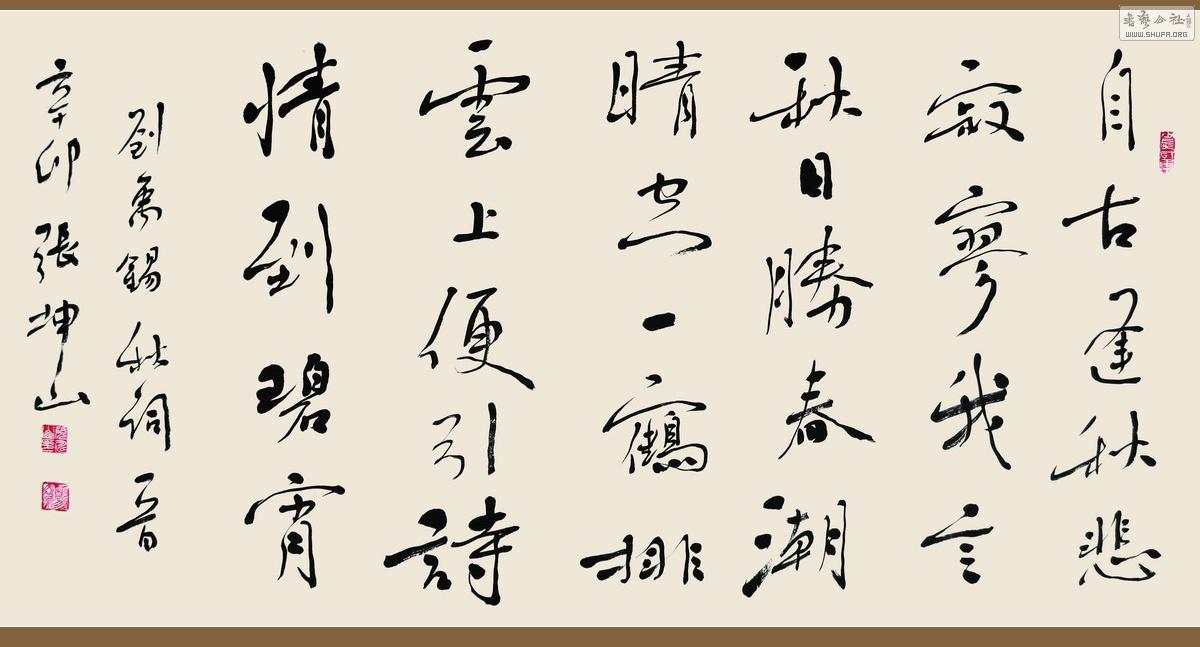 自古逢秋悲
寂寥我言
秋日勝春潮
晴空一鶴排
雲上便引詩
情到碧霄
劉禹錫秋詞一首
辛卯張坤山
書藝公社
WWW.SHUFA.ORG